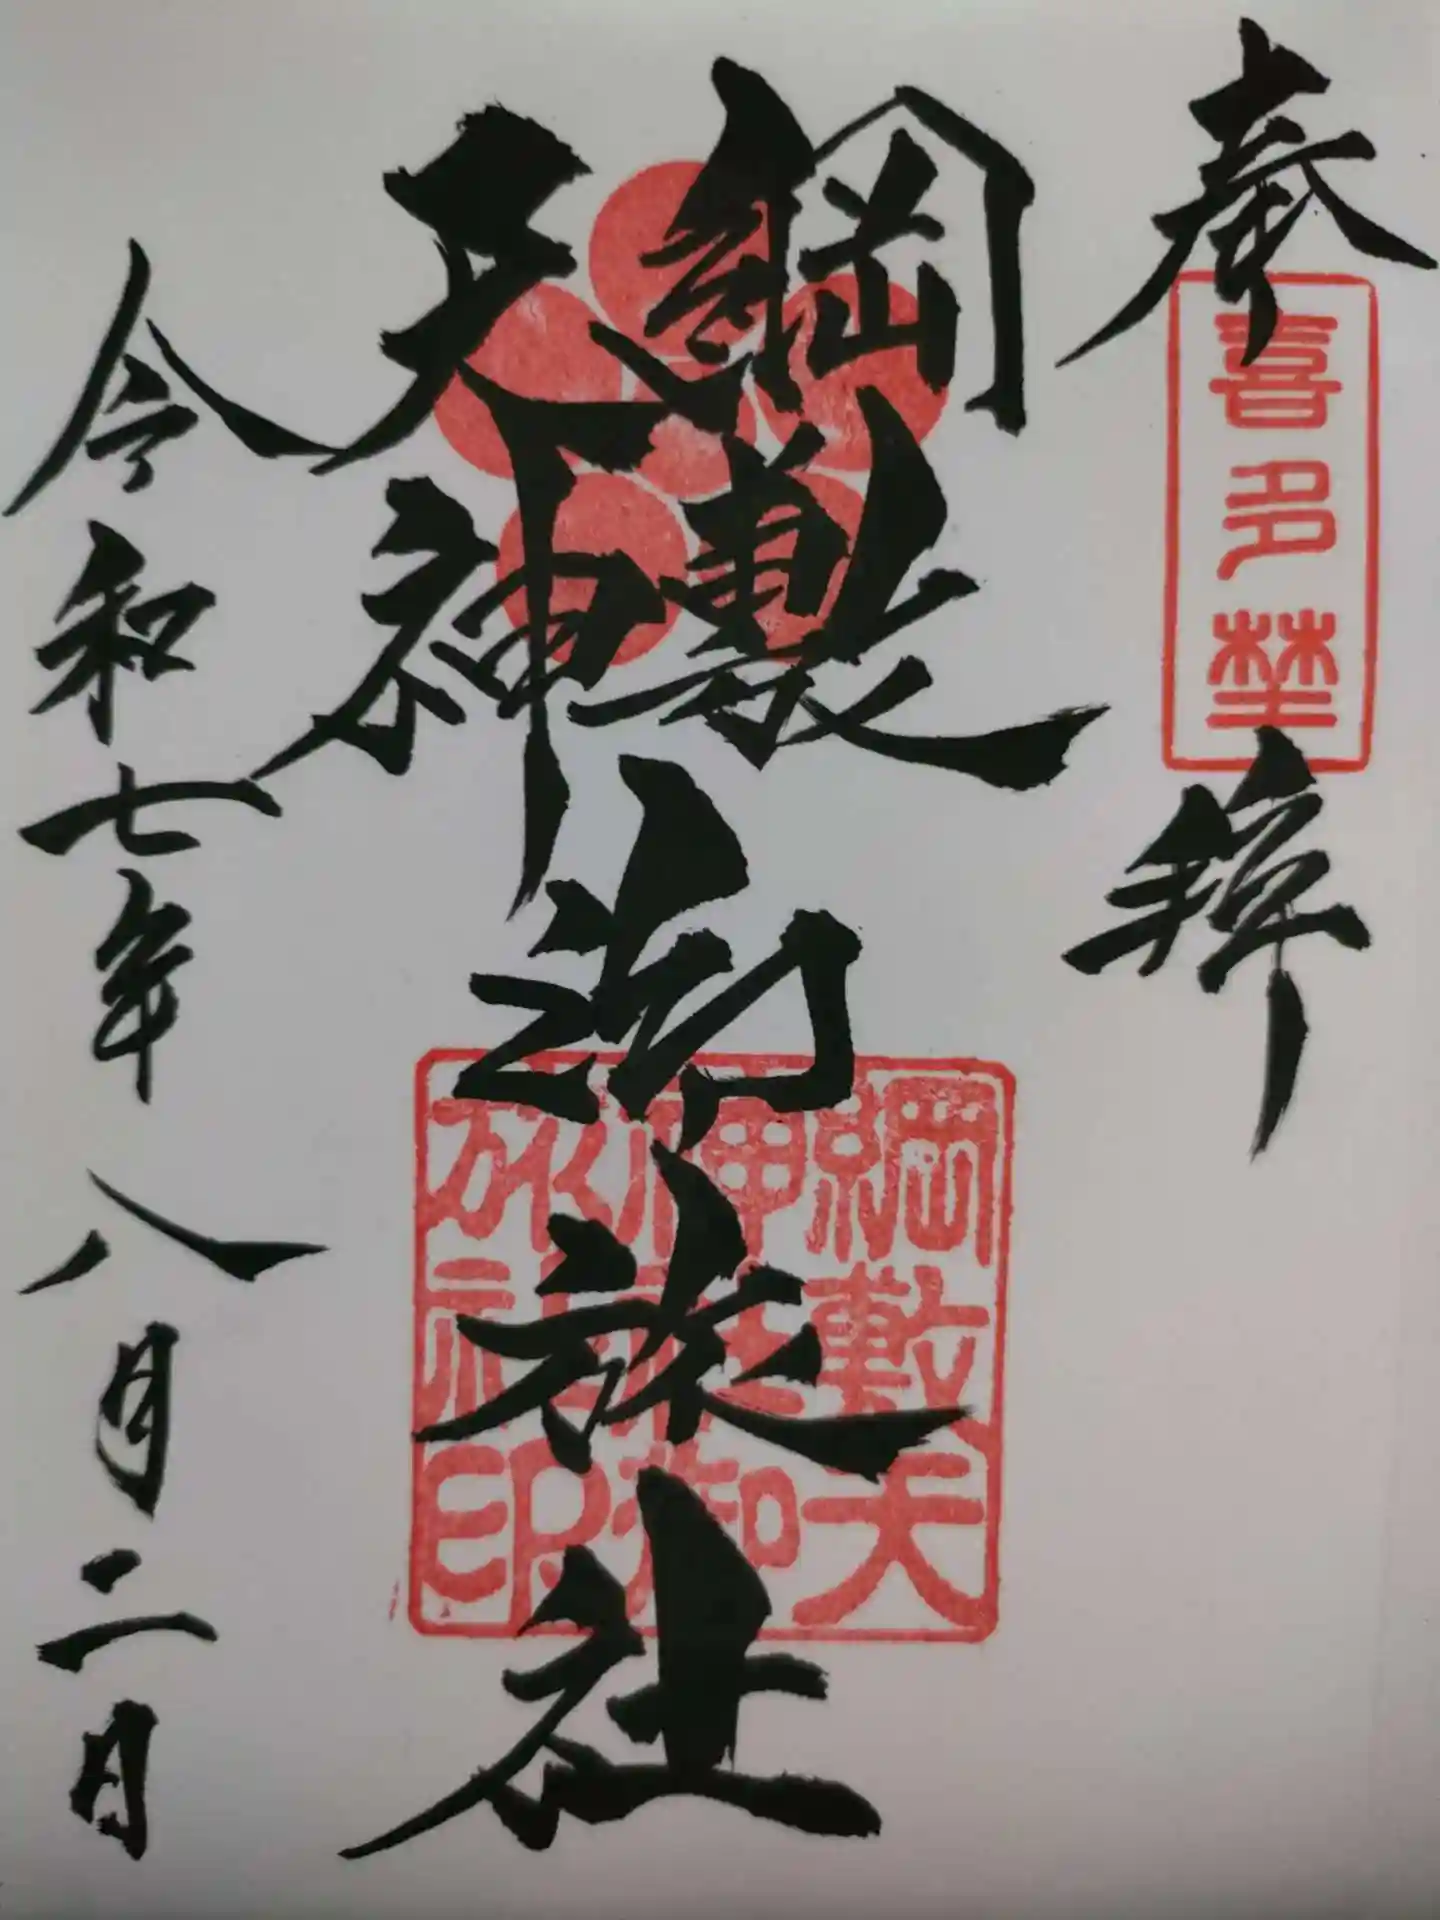 奉拝
喜多埜
綱敷
天神
御旅社
綱敷天
神社御
旅社印
令和七年八月二日